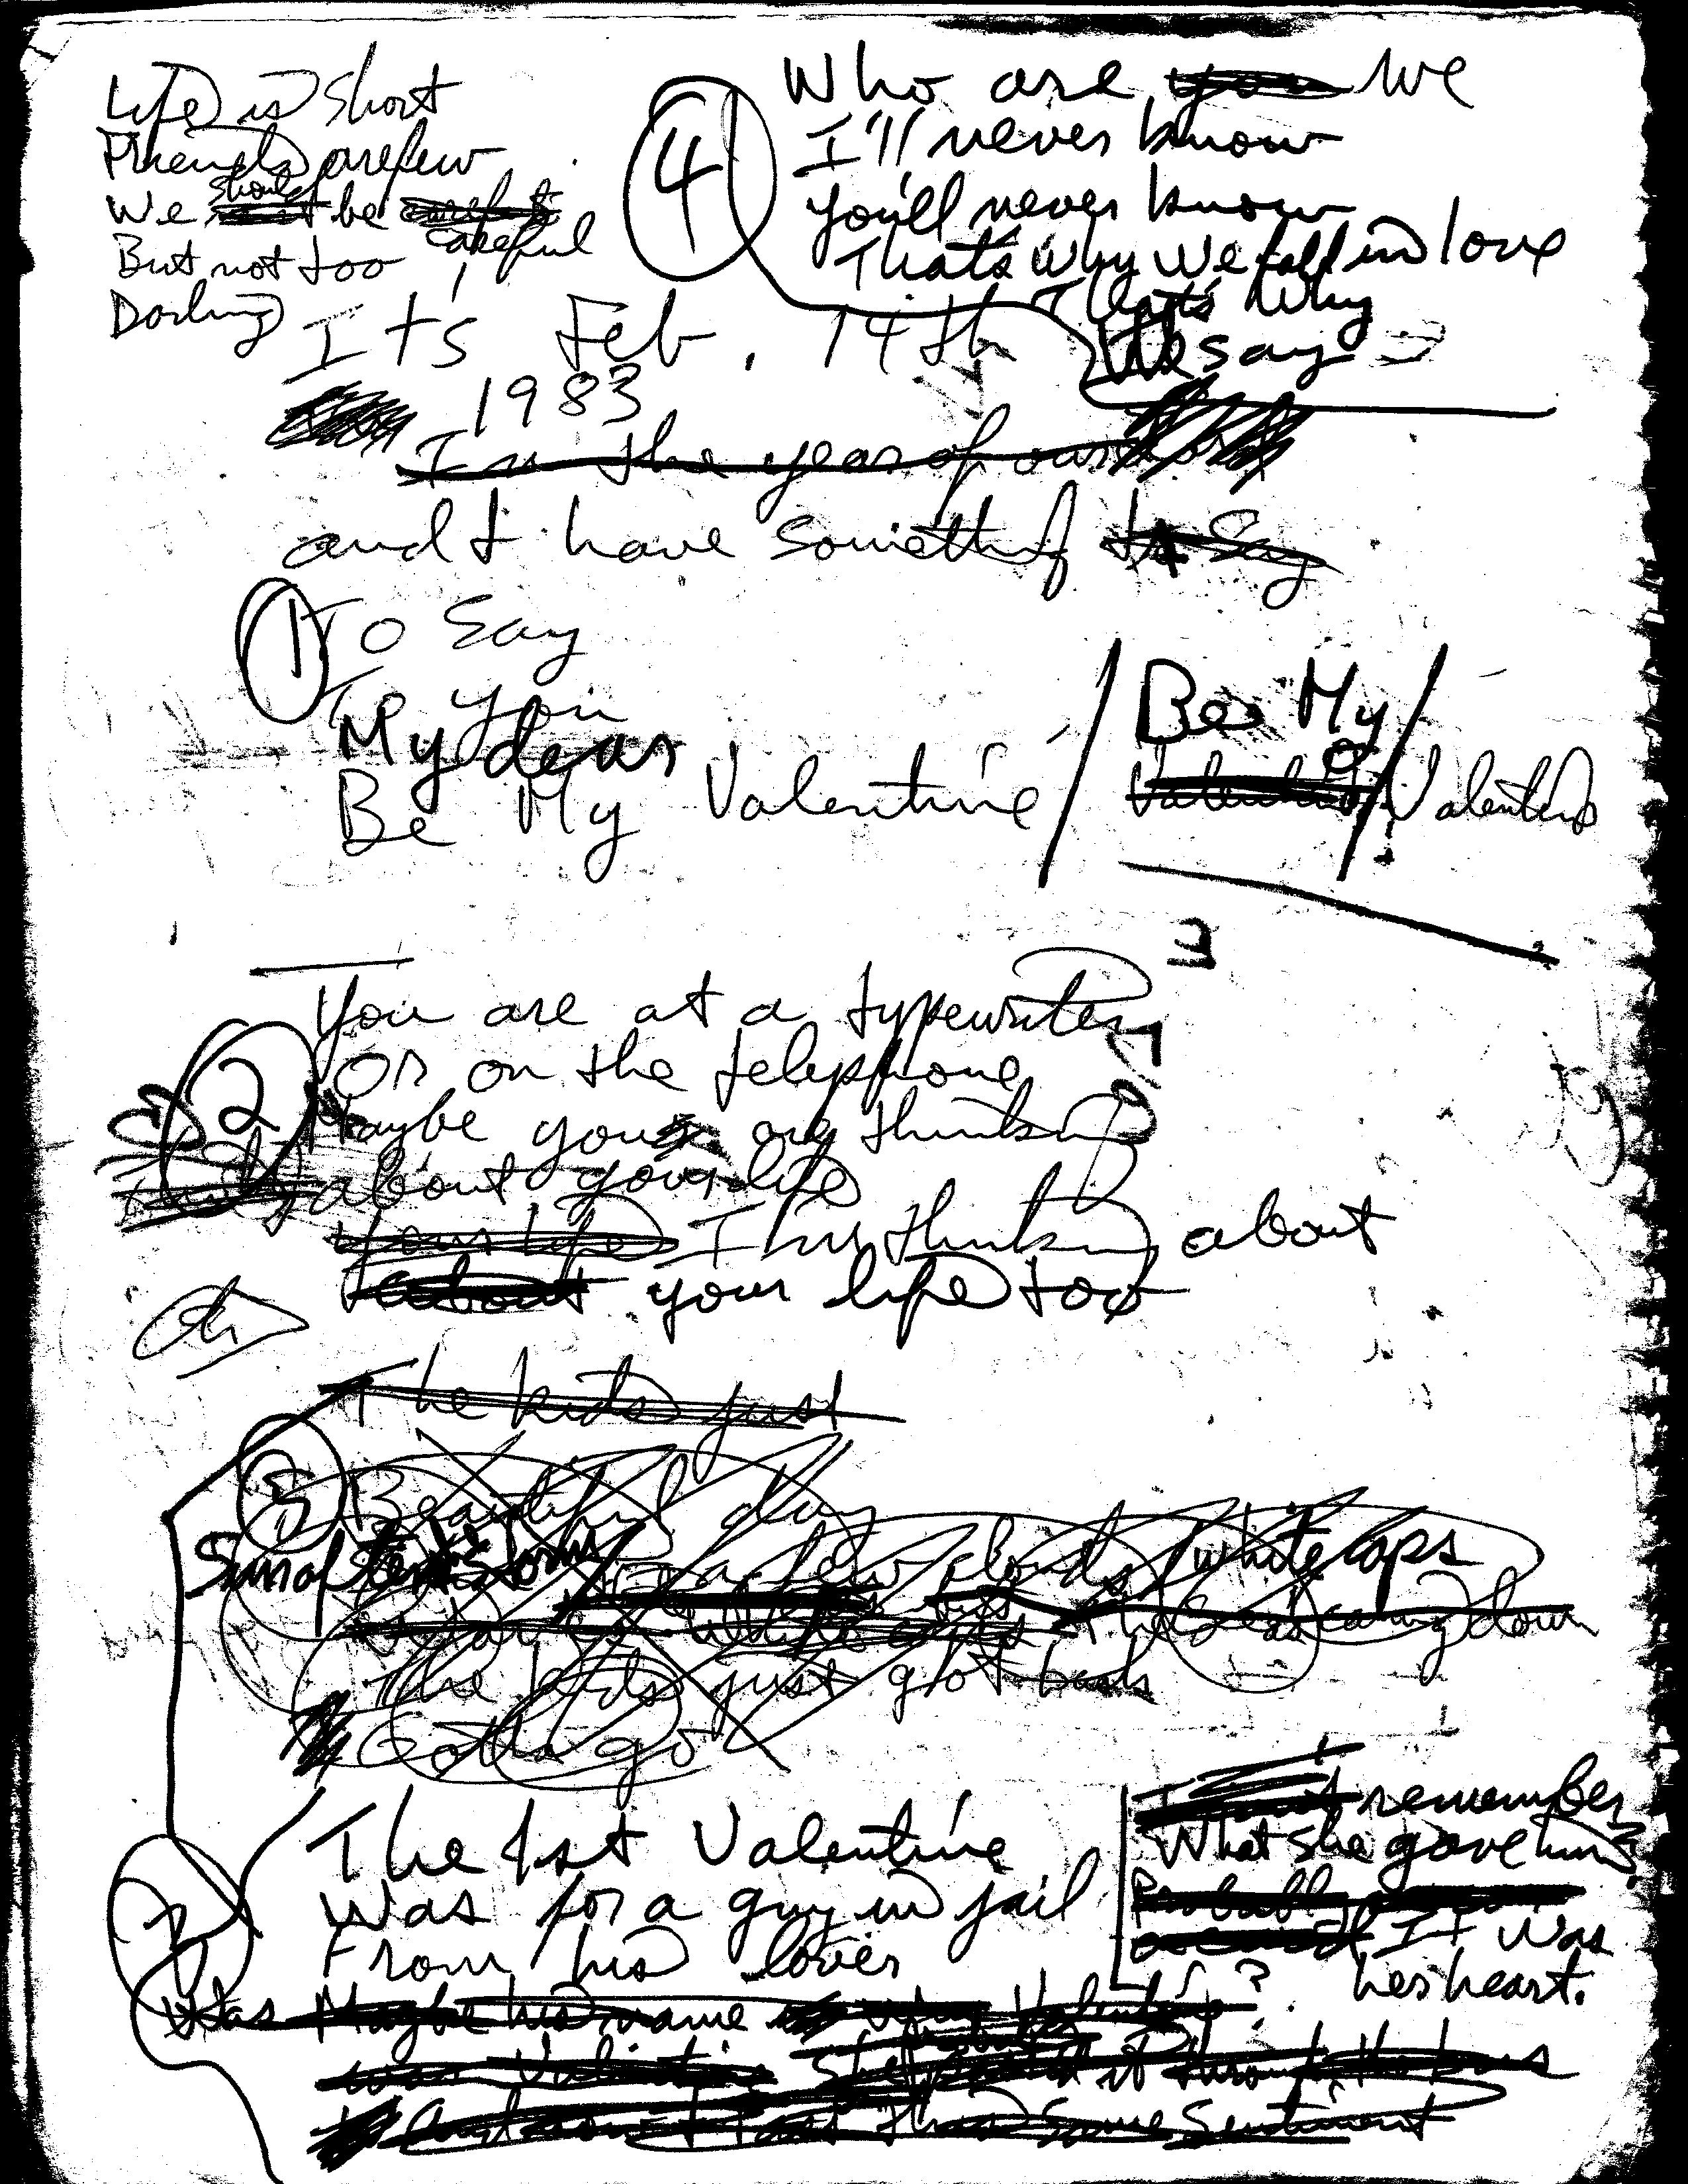 Life is short
Friends are few
We should be careful
But not too
Darling
4
Who are you we
I'll never know
You'll never know
That's why we fall in love
That's why
We say
It's Feb. 14th
1983
In the year of our
and I have something to say
1
To say
To you
My dear
Be My Valentine / Be My /
Valentine Valentine
3
You are at a typewriter
2
Or on the telephone
Maybe you are thinking
about your life
your life I'm thinking about
about your life too
The kids just
3
Beautiful day
Sun after storm a few clouds / white caps
white caps coming down
The kids just got back
Gotta go
The 1st Valentine
Was for a guy in jail
From his lover
remember
What she gave him?
Probably
It was
her heart.
Was Maybe his name Valentine?
was Valentine She it through the bars
same sentiment